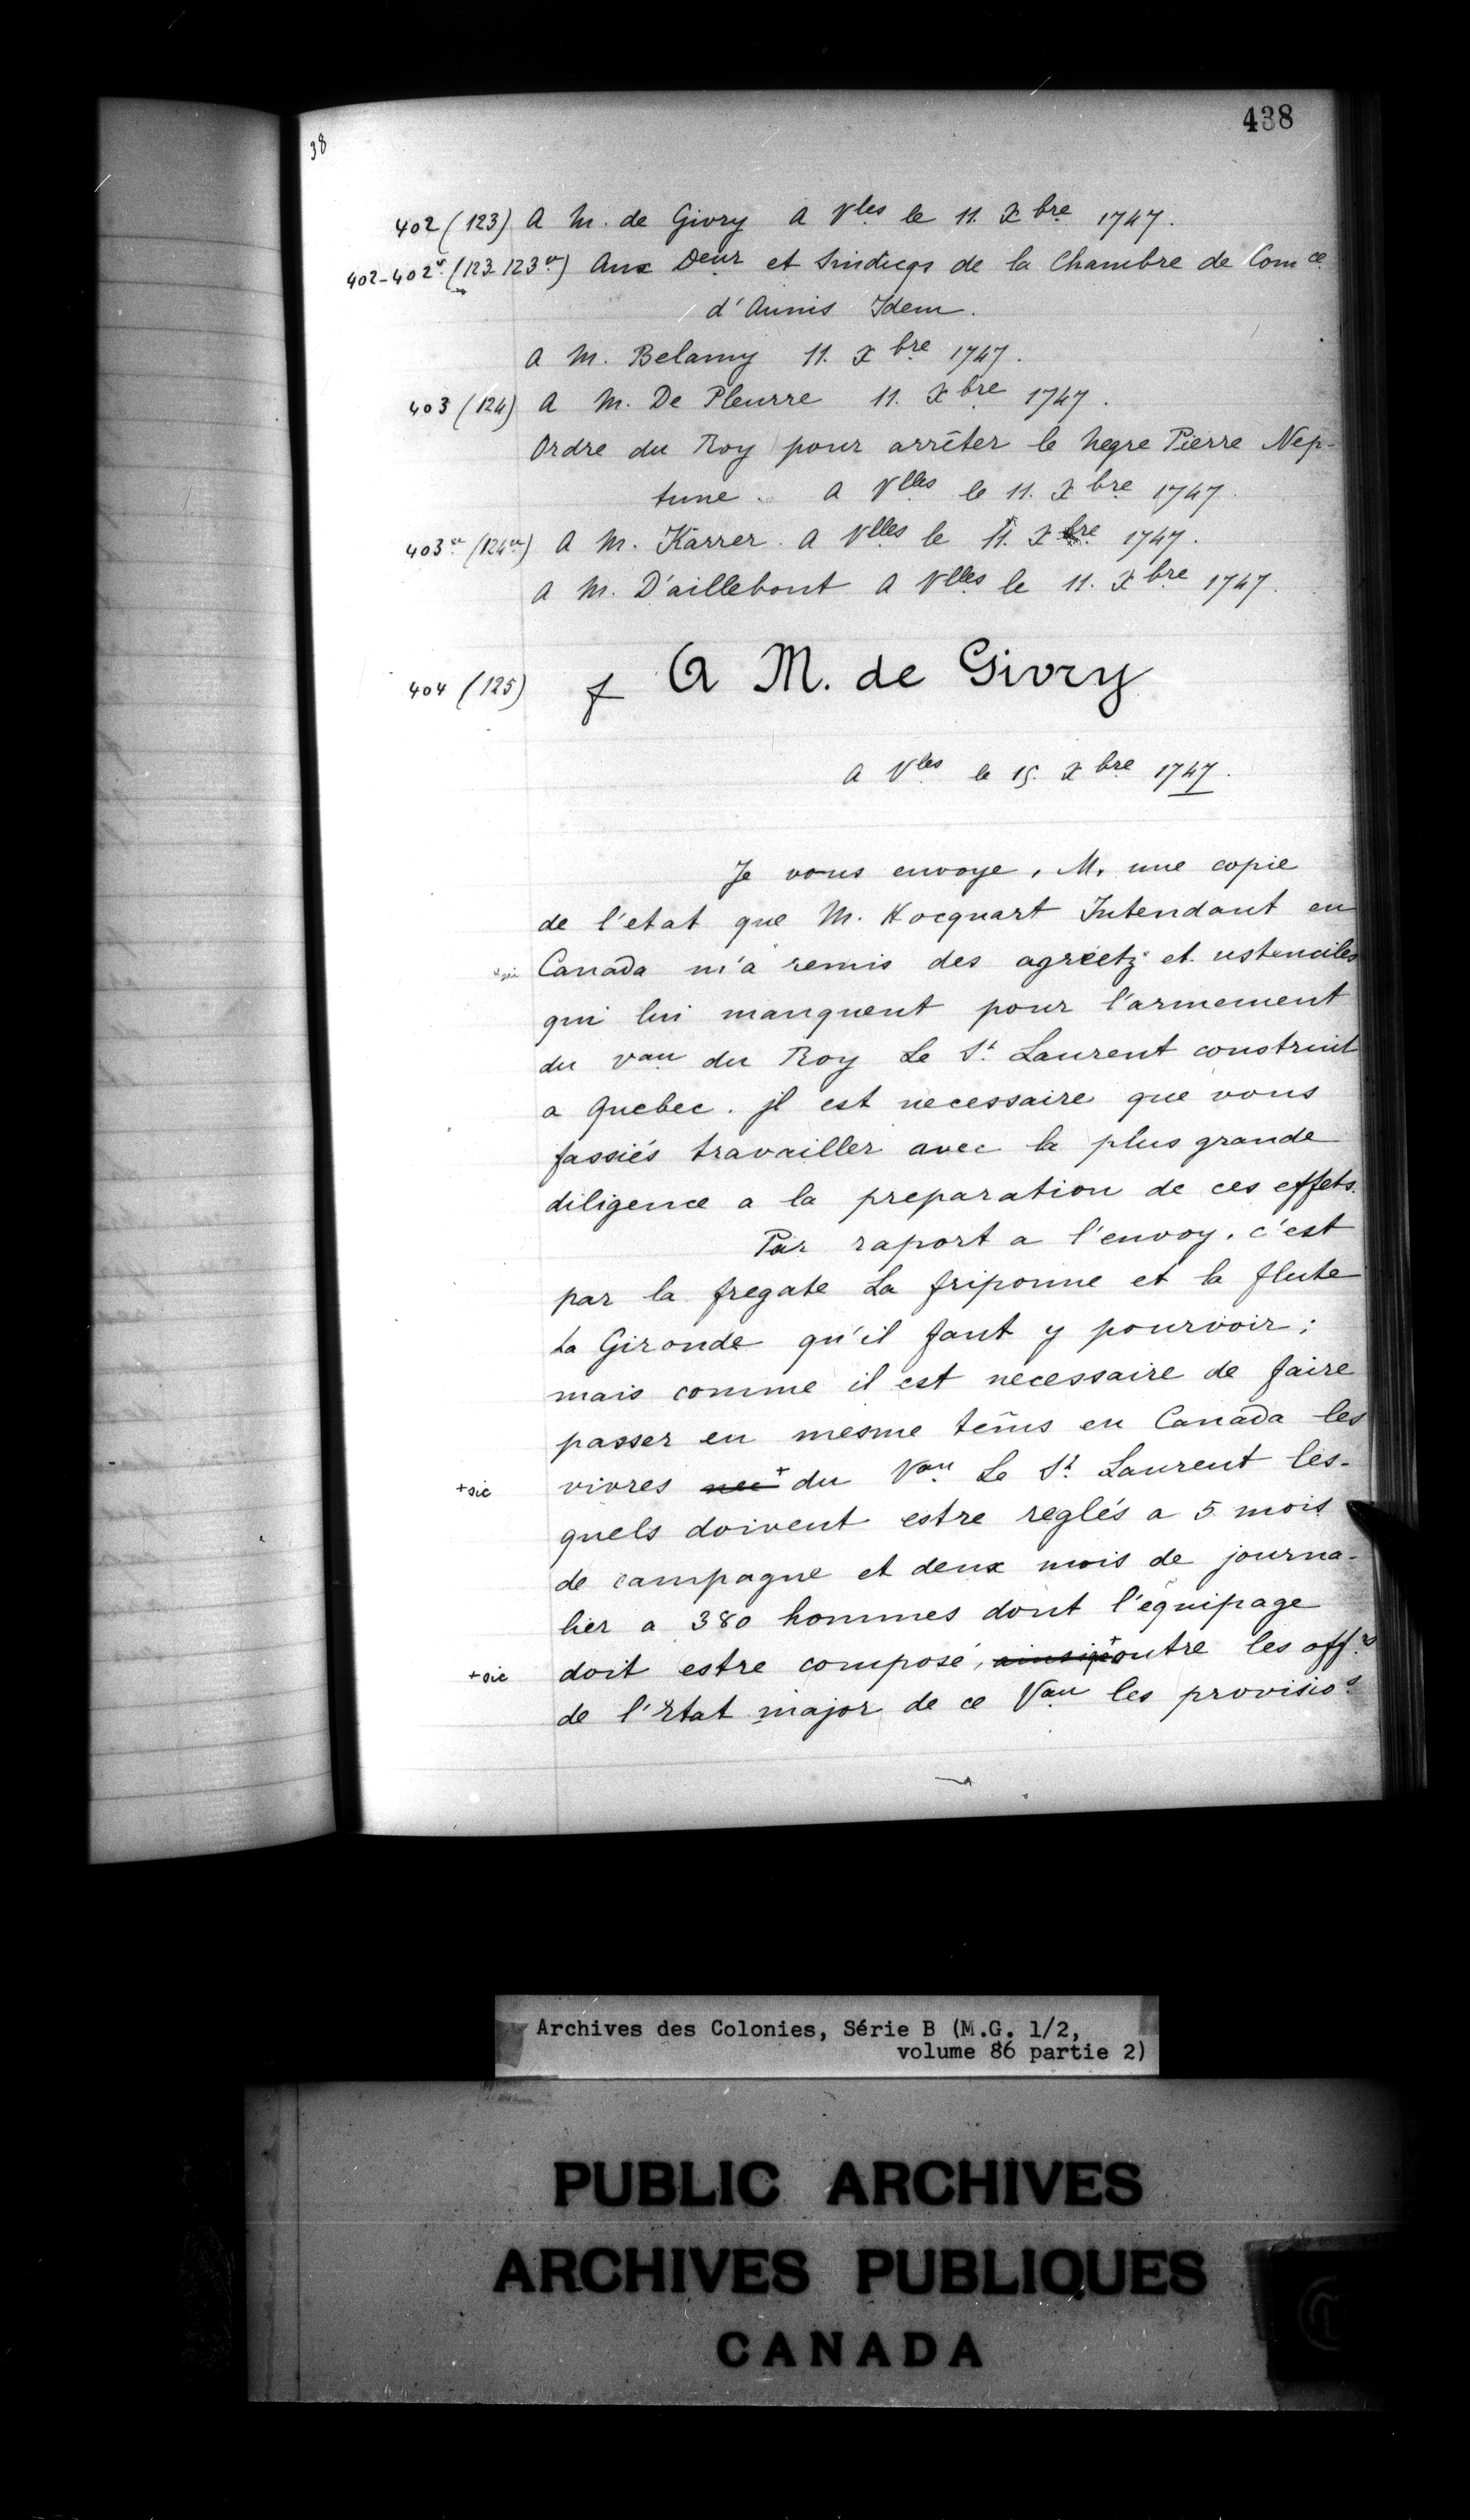 438
38
402 (123) A M. de Givry A Vles le 11. Xbre 1747.
402-402v (123-123vo) Aux Deur et Sindicqs de la Chambre de Comce
d'Aunis Idem.
A M. Belamy 11. Xbre 1747.
403 (124) A M. De Pleurre 11. Xbre 1747.
Ordre du Roy pour arrêter le Negre Pierre Nep-
tune. A Vlles le 11. Xbre 1747.
403vo (124vo) A M. Karrer. A Vlles le 11. Xbre 1747.
A M. D'aillebout A Vlles le 11. Xbre 1747.
404 (125) f A M. de Givry
A Vles le 15. Xbre 1747.
Je vous envoye, M. une copie
de l'etat que M. Hocquart Intendant en
Canada m'a remis des agréetz et ustenciles
qui lui manquent pour l'armement
du vau du Roy Le St Laurent construit
a Quebec. jl est necessaire que vous
fassiés travailler avec la plus grande
diligence a la preparation de ces effets.
Par raport a l'envoy, c'est
par la fregate La friponne et la flute
La Gironde qu'il faut y pourvoir;
mais comme il est necessaire de faire
passer en mesme tem̃s en Canada les
+sic vivres nec+ du Vau Le St Laurent les-
quels doivent estre reglés a 5 mois
de campagne et deux mois de journa-
lier a 380 hommes dont l'equipage
+sic doit estre composé, ainsi que+ outre les offrs
de l'Etat major de ce Vau les provisios
Archives des Colonies, Série B (M.G. 1/2,
volume 86 partie 2)
PUBLIC ARCHIVES
ARCHIVES PUBLIQUES
CANADA